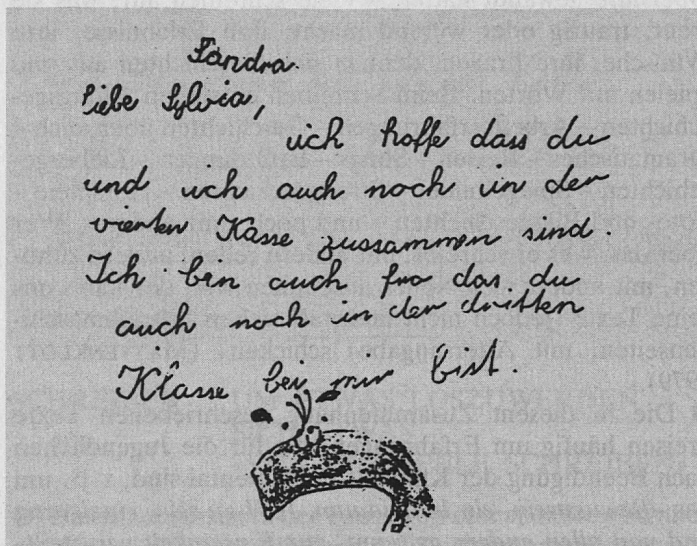 Sandra
Liebe Sylvia,
ich hoffe dass du
und ich auch noch in der
vierten Kasse zussammen sind.
Ich bin auch fro das du
auch noch in der dritten
Klasse bei mir bist.